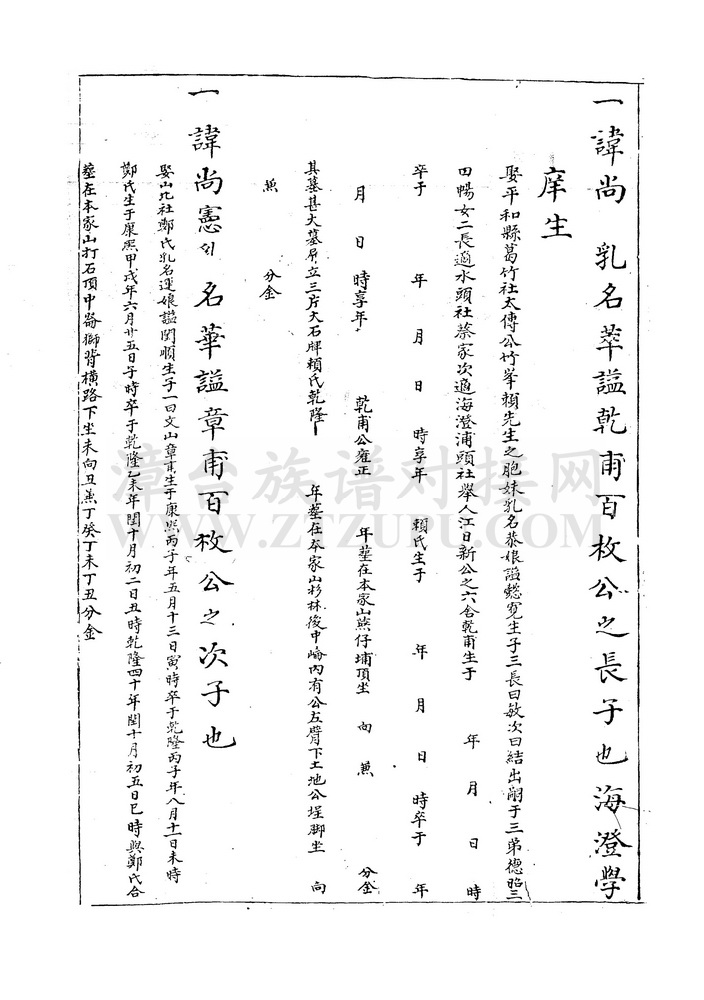 一諱尚 乳名萃謚乾甫百枚公之長子也海澄學
庠生
娶平和縣葛竹社太傅公竹峯賴先生之胞妹乳名恭娘謚懿寬生子三長曰敏次曰結出嗣于三弟德昭三
曰暢女二長適水頭社蔡家次適海澄浦頭社舉人江日新公之六舍乾甫生于 年 月 日 時
卒于 年 月 日 時享年 賴氏生于 年 月 日 時卒于 年
月 日 時享年 乾甫公雍正 年塟在本家山燕仔埔頂坐 向 兼 分金
其墓甚大墓屏立三片大石牌賴氏乾隆 年塟在本家山杉林後中崙内有公左臂下土地公埕脚坐 向
兼 分金
一諱尚憲 名華謚章甫百枚公之次子也
娶山兜社鄭氏乳名運娘謚閔順生子一曰文山章甫生于康熙丙子年五月十三日寅時卒于乾隆丙子年八月十一日未時
鄭氏生于康熙甲戌年六月廿五日子時卒于乾隆乙未年閏十月初二日丑時乾隆四十年閏十月初五日巳時與鄭氏合
塟在本家山打石頂中崙獅背橫路下坐未向丑兼丁癸丁未丁丑分金
漳台族谱对接网
WWW.ZTZUPU.COM